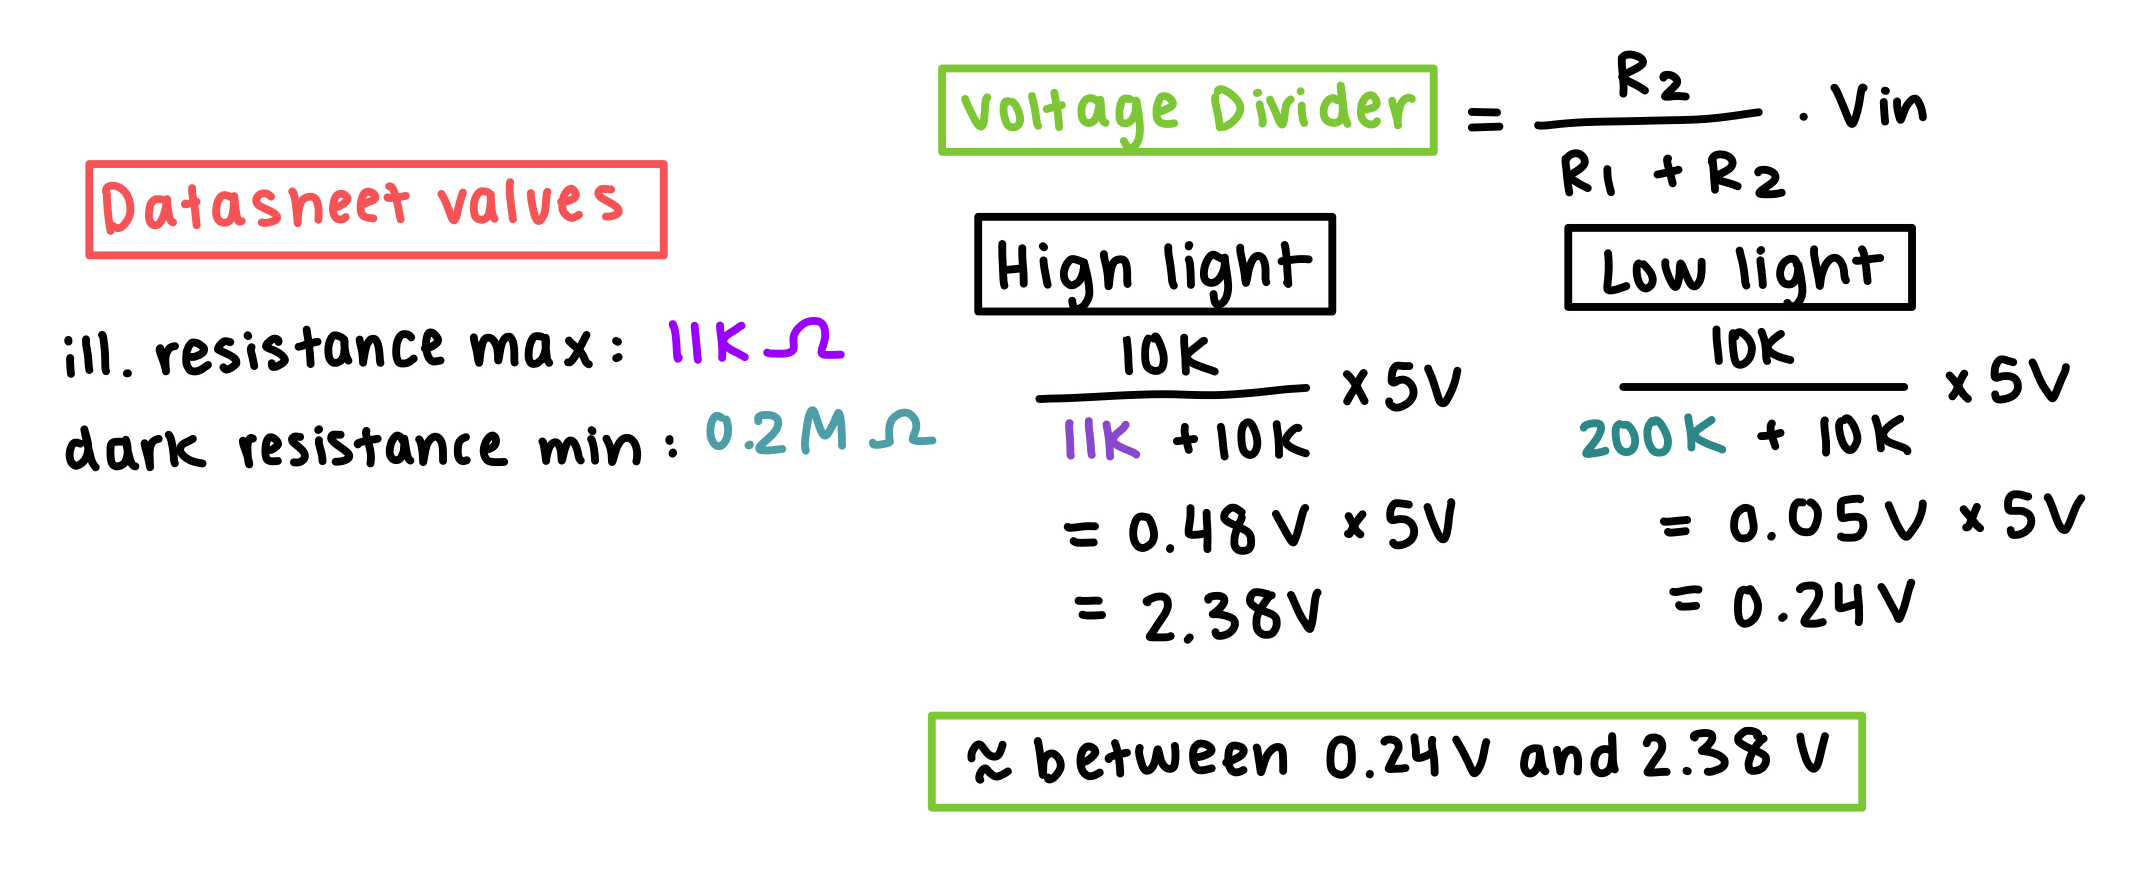 Datasheet values
ill. resistance max: 11K Ω
dark resistance min: 0.2M Ω
Voltage Divider = R2 / R1 + R2 · Vin
High light
10K / 11K + 10K × 5V
= 0.48 V × 5V
= 2.38V
Low light
10K / 200K + 10K × 5V
= 0.05 V × 5V
= 0.24V
≈ between 0.24V and 2.38 V